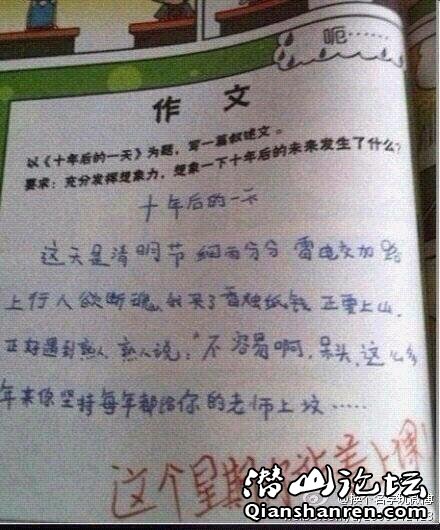 呃……
作文
以《十年后的一天》为题，写一篇叙述文。
要求：充分发挥想象力，想象一下十年后的未来发生了什么？
十年后的一天
这天是清明节 细雨分分 雷电交加 路
上行人欲断魂，我买了香烛纸钱 正要上山，
正好遇到熟人 熟人说："不容易啊，呆头，这么多
年来你坚持每年都给你的老师上坟……
这个星期你站着上课！
潜山论坛
Qianshanren.com